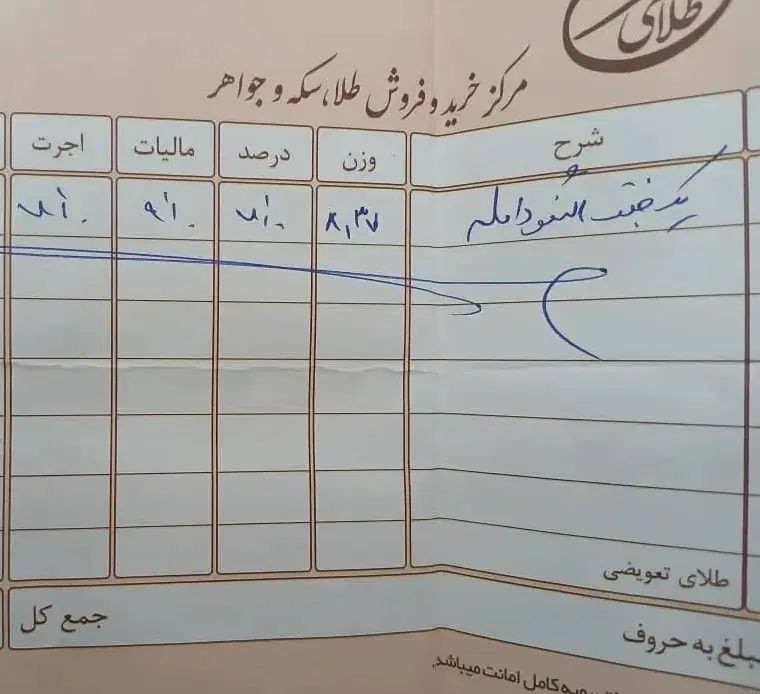 طلای
مرکز خرید و فروش طلا، سکه و جواهر
شرح وزن درصد مالیات اجرت
یک جفت النگو دامله ۸,۳۷ ۷٪ ۹٪
طلای تعویضی
مبلغ به حروف جمع کل
کامل امانت میباشد